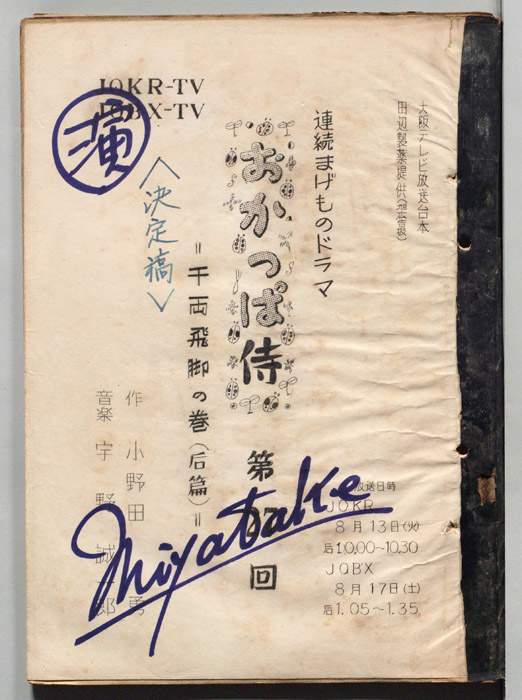 大阪テレビ放送台本
田辺製薬提供
連続まげものドラマ
おかっぱ侍
第
回
＝千両飛脚の巻(后篇)＝
JOKR-TV
JOBX-TV
演
〈決定稿〉
作 小野田 勇
音楽 宇野 誠一郎
放送日時
JOKR
8月13日(火)
后10.00~10.30
JOBX
8月17日(土)
后1.05~1.35
Miyatake